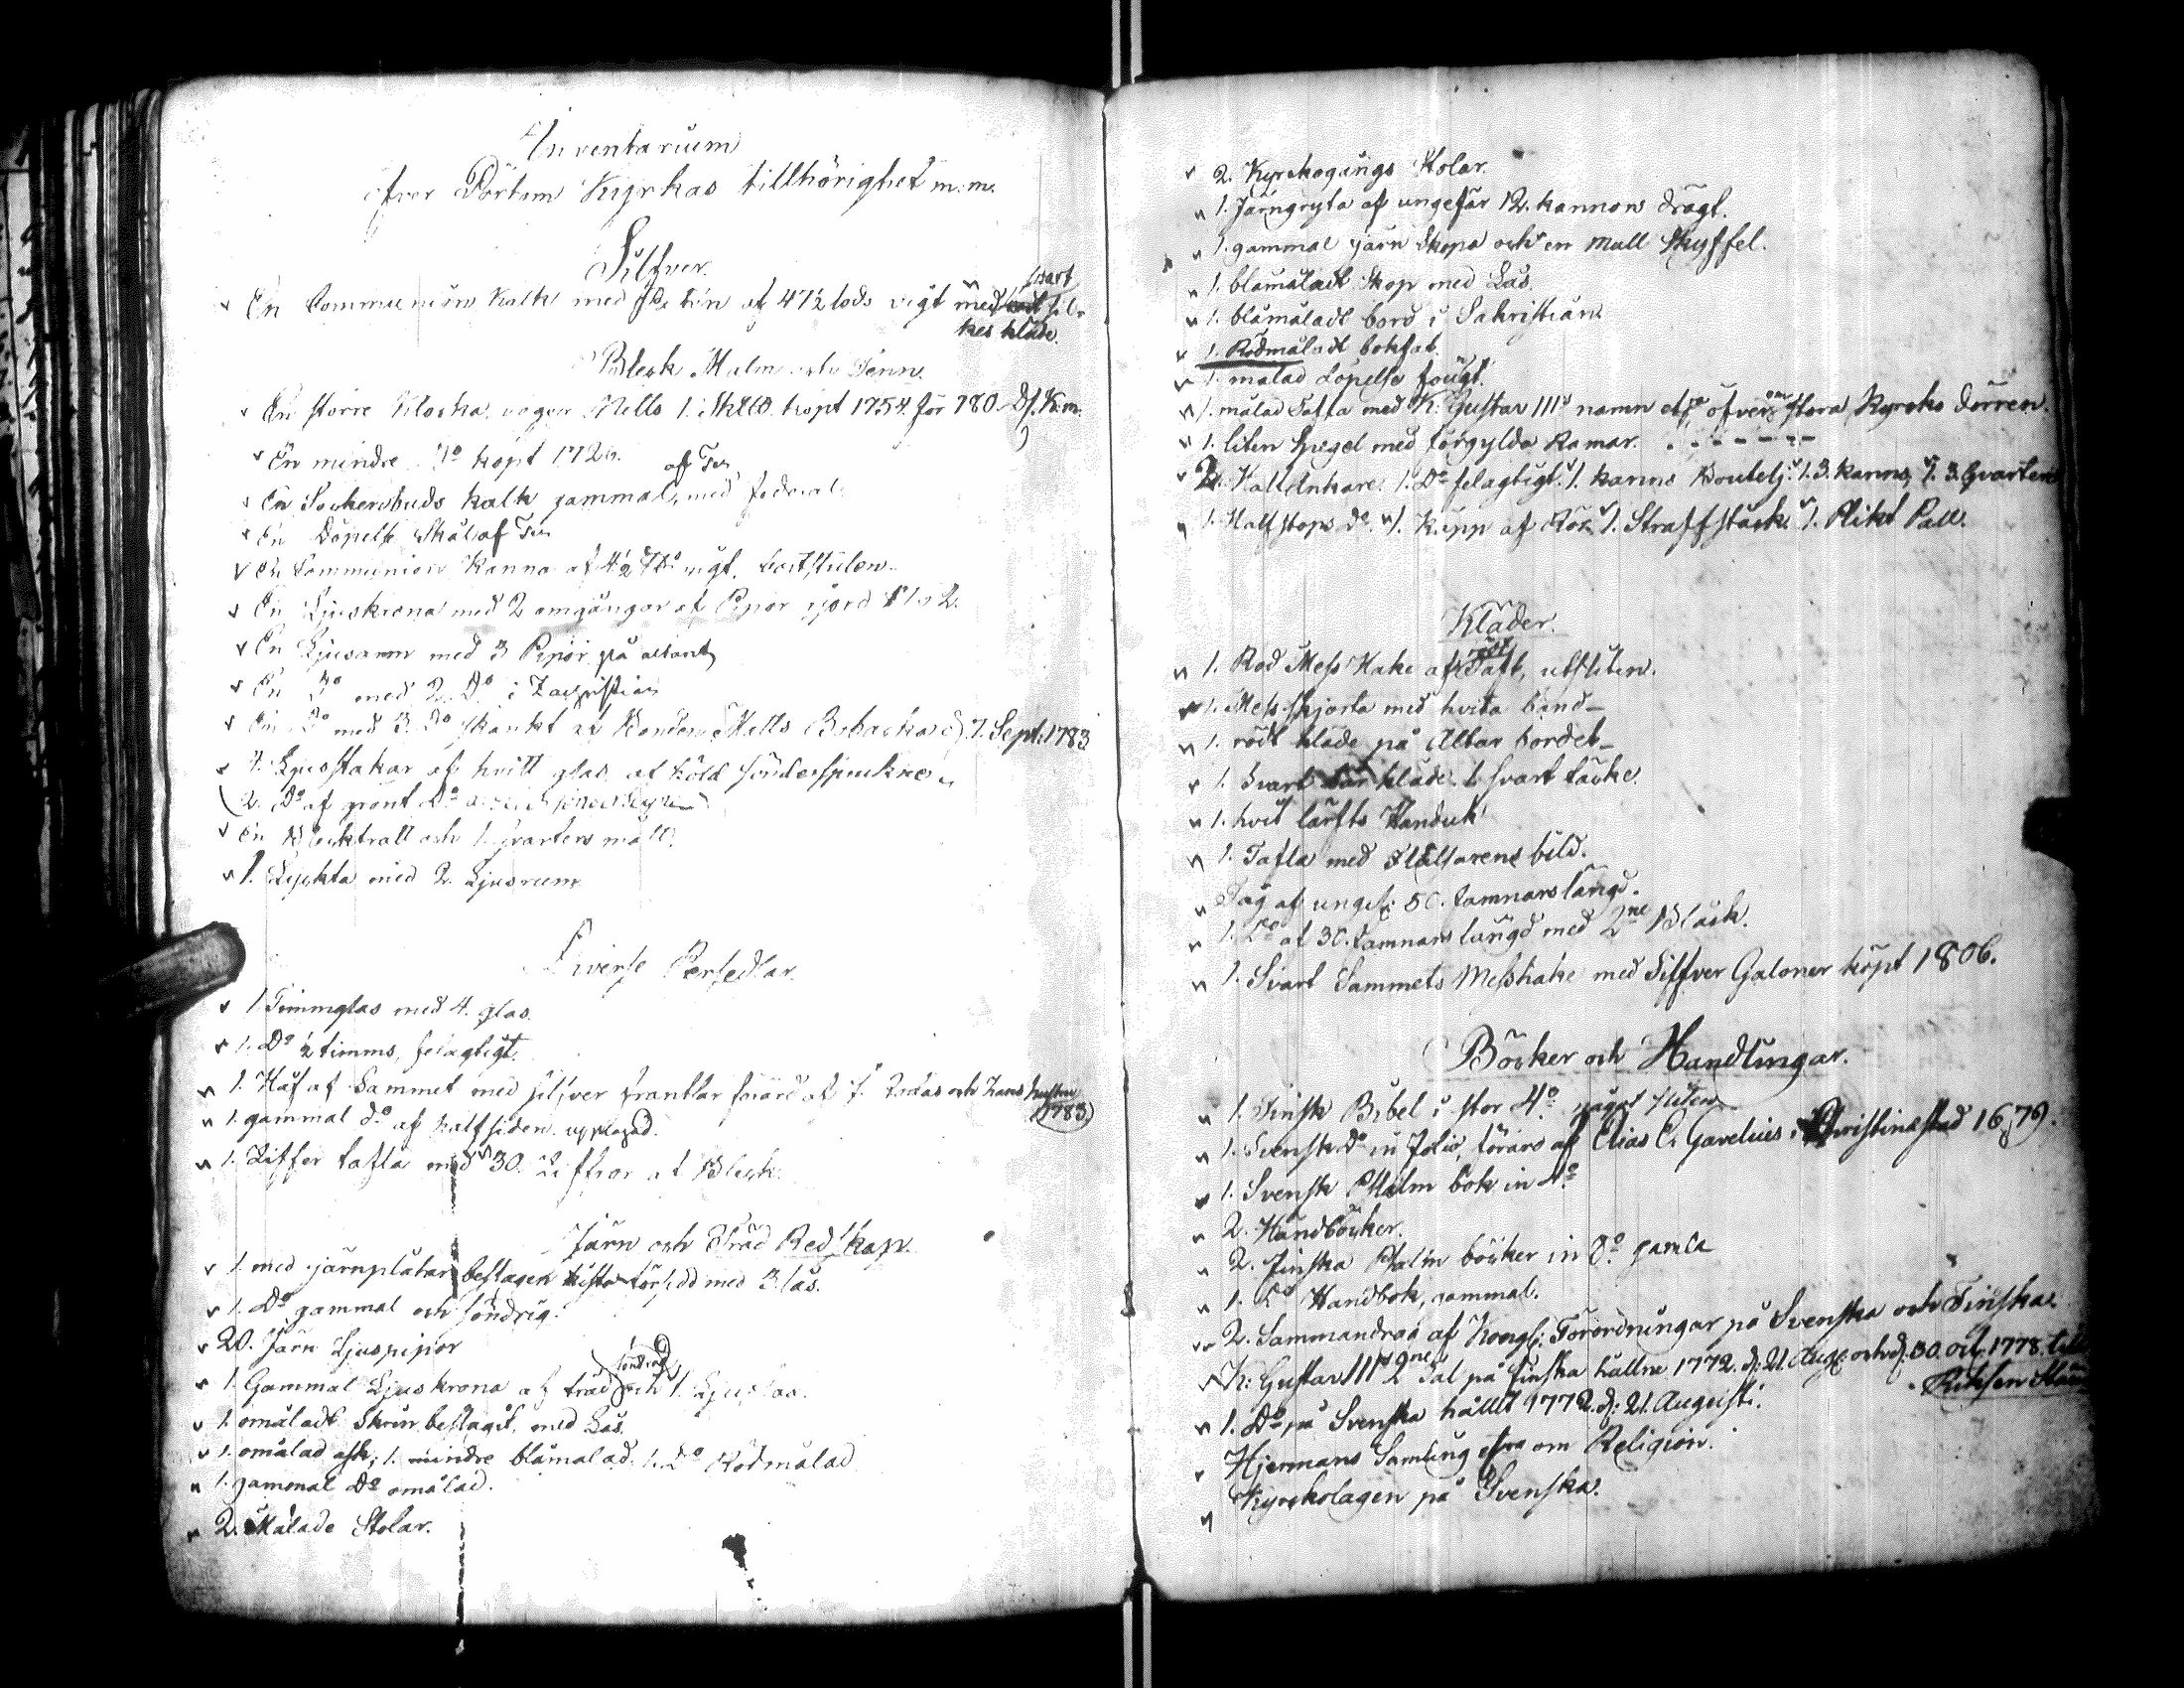 Inventarium
öfver Pörtom Kyrkas tillhörighet m:m:
Silfver.
En Communion Kalk med af 47½ lods vigt med svart sil-
kes kläde.
Bleck Malm och Tenn.
En större Klocka, väger Netto 1. köpt 1754. för 780. D. K:m:
En mindre Do köpt 172
En Sockenbuds kalk gammal, af Ten med foderal.
En Döpelse Skål af Ten
En Communion Kanna af vigt. bortstulen
En Ljuskrona med 2 omgångar af Pipor gjord
En Ljusarm med 3 Pipor på altaret
En Do med 2. Do i Zacristian
En Do med 3. Do skänkt af Bonden Matts d. 7. Sept: 1783
Ljusstakar af hvitt glas af köld sönderspruckne
2. Do af grönt Do
En Blecktratt och 1. qvarters mått.
1. Lyckta med 2. Ljusrum
Diverse Persedlar.
1. Timmglas med 4. glas.
1. Do ½ timms, felagtigt.
1. Håf af Sammet med silfver frantsar förärd af och hans hustru
1783
1. gammal do af halfsiden upplagad.
1. Ziffer tafla med 30. Ziffror af Bleck.
Järn och Träd Redskap.
1. med järnplåtar beslagen kista försedd med 3 lås.
1. Do gammal och söndrig.
20. Järn Ljuspipor
1. Gammal Ljuskrona af träd söndrig och 1.
1. omåladt Skrin beslagit, med Lås.
1. omålad ask, 1. mindre blåmålad. 1. Do Rödmålad
1. gammal Do omålad.
2. Målade Stolar.
2. Kyrckogångs Stolar.
1. Järngryta af ungefär 12. kannors drägt.
1. gammal järn Skopa och en mull Skyffel.
1. blåmåladt Skop med Lås.
1. blåmåladt bord i Sakristian
1. Rödmåladt
1. målad Döpelse
1. målad Tafla med K: Gustaf IIIs namn öfver stora Kyrcko dörren.
1. liten Spegel med förgylda Ramar.
2. Hall Ankare. 1. Do felagtigt. 1. kanns Boutelj. 1. 3. kanns, 1. 3. Qvarters
1. Halfstops do. 1. Käpp af Rör. 1. Straffståck. 1. Plikt Pall.
Kläder.
1. Röd Mess Hake af Taft, utsliten.
1. Mess Skjorta med hvita band
1. rödt kläde på Altar bordet
1. Svart bår kläde. 1. svart täcke.
1. hvit lärfts Handuk
1. Tafla med bild.
Tåg af ungef: 50. famnars längd.
1. Do af 30. famnars längd med 2ne Bläck.
1. Svart Sammets Messhake med Silfver Galoner köpt 1806.
Böcker och Handlingar.
1. Finsk Bibel i stor 4:o något sliten
1. Svensk Do in folio, förärd af Elias C: Gavelius i Christinestad 1679.
1. Svensk Psalm bok in 4:o
2. Handböcker.
2. Finska Psalm böcker in 8:o gamla
1. Do Handbok, gammal.
2. Sammandrag af Kongl: Förordningar på Svenska och Finska
K: Gustaf IIIs 2ne Tal på Finska hållne 1772. d: 21. Aug: och d: 30. oct. 1778. till
Riksens Ständ
1. Do på Svenska hållit 1772. d: 21. Augusti.
Hjermans Samling om Religion.
Kyrckolagen på Svenska.